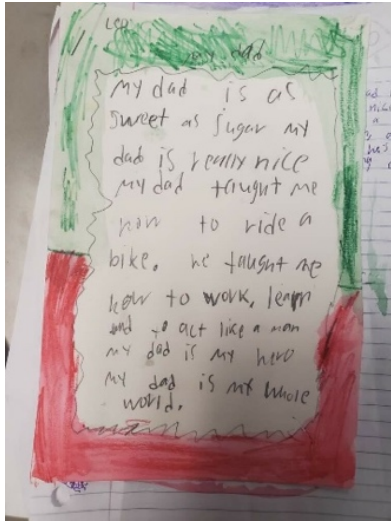 Leo
my dad
My dad is as
sweet as sugar my
dad is really nice
my dad taught me
how to ride a
bike. he taught me
how to work, learn
and to act like a man
my dad is my hero
my dad is my whole
world.